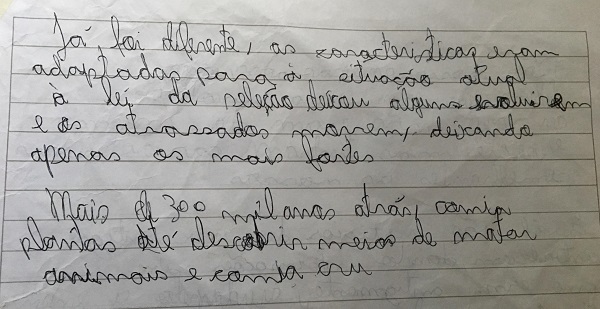 Já, foi diferente, as características eram
adaptadas para à situação atual
à lei da seleção deixou alguns evoluirem
e os atrassados morrem, deixando
apenas os mais fortes
Mais de 300 mil anos atrás, comia
plantas até descobrir meios de matar
animais e comia cru